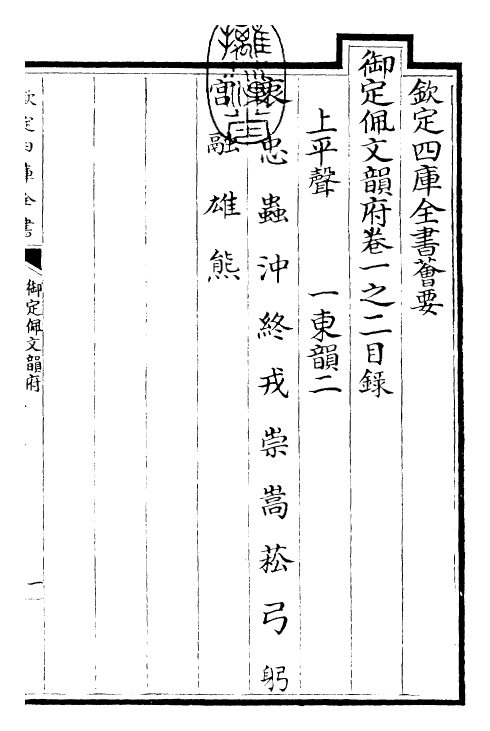 欽定四庫全書薈要
御定佩文韻府卷一之二目録
上平聲　一東韻二
衷 忠 蟲 沖 終 戎 崇 嵩 菘 弓 躬
宮 融 雄 熊
欽定四庫全書
御定佩文韻府
一